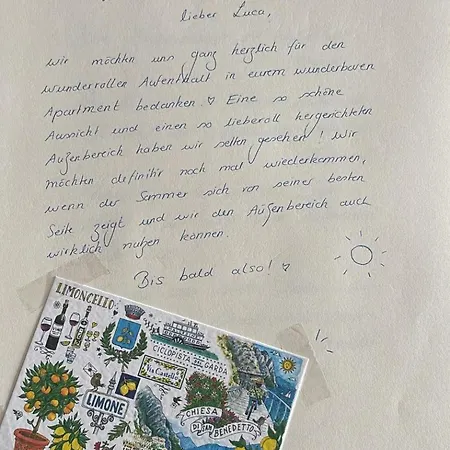 lieber Luca,
wir möchten uns ganz herzlich für den
wundervollen Aufenthalt in eurem wunderbaren
Apartment bedanken ♡ Eine so schöne
Aussicht und einen so liebevoll hergerichteten
Außenbereich haben wir selten gesehen! Wir
möchten definitiv noch mal wiederkommen,
wenn der Sommer sich von seiner besten
Seite zeigt und wir den Außenbereich auch
wirklich nutzen können.
Bis bald also! ♡
LIMONCELLO
CICLOPISTA DEL GARDA
Via Castello
LIMONE
CHIESA
DI SAN
BENEDETTO